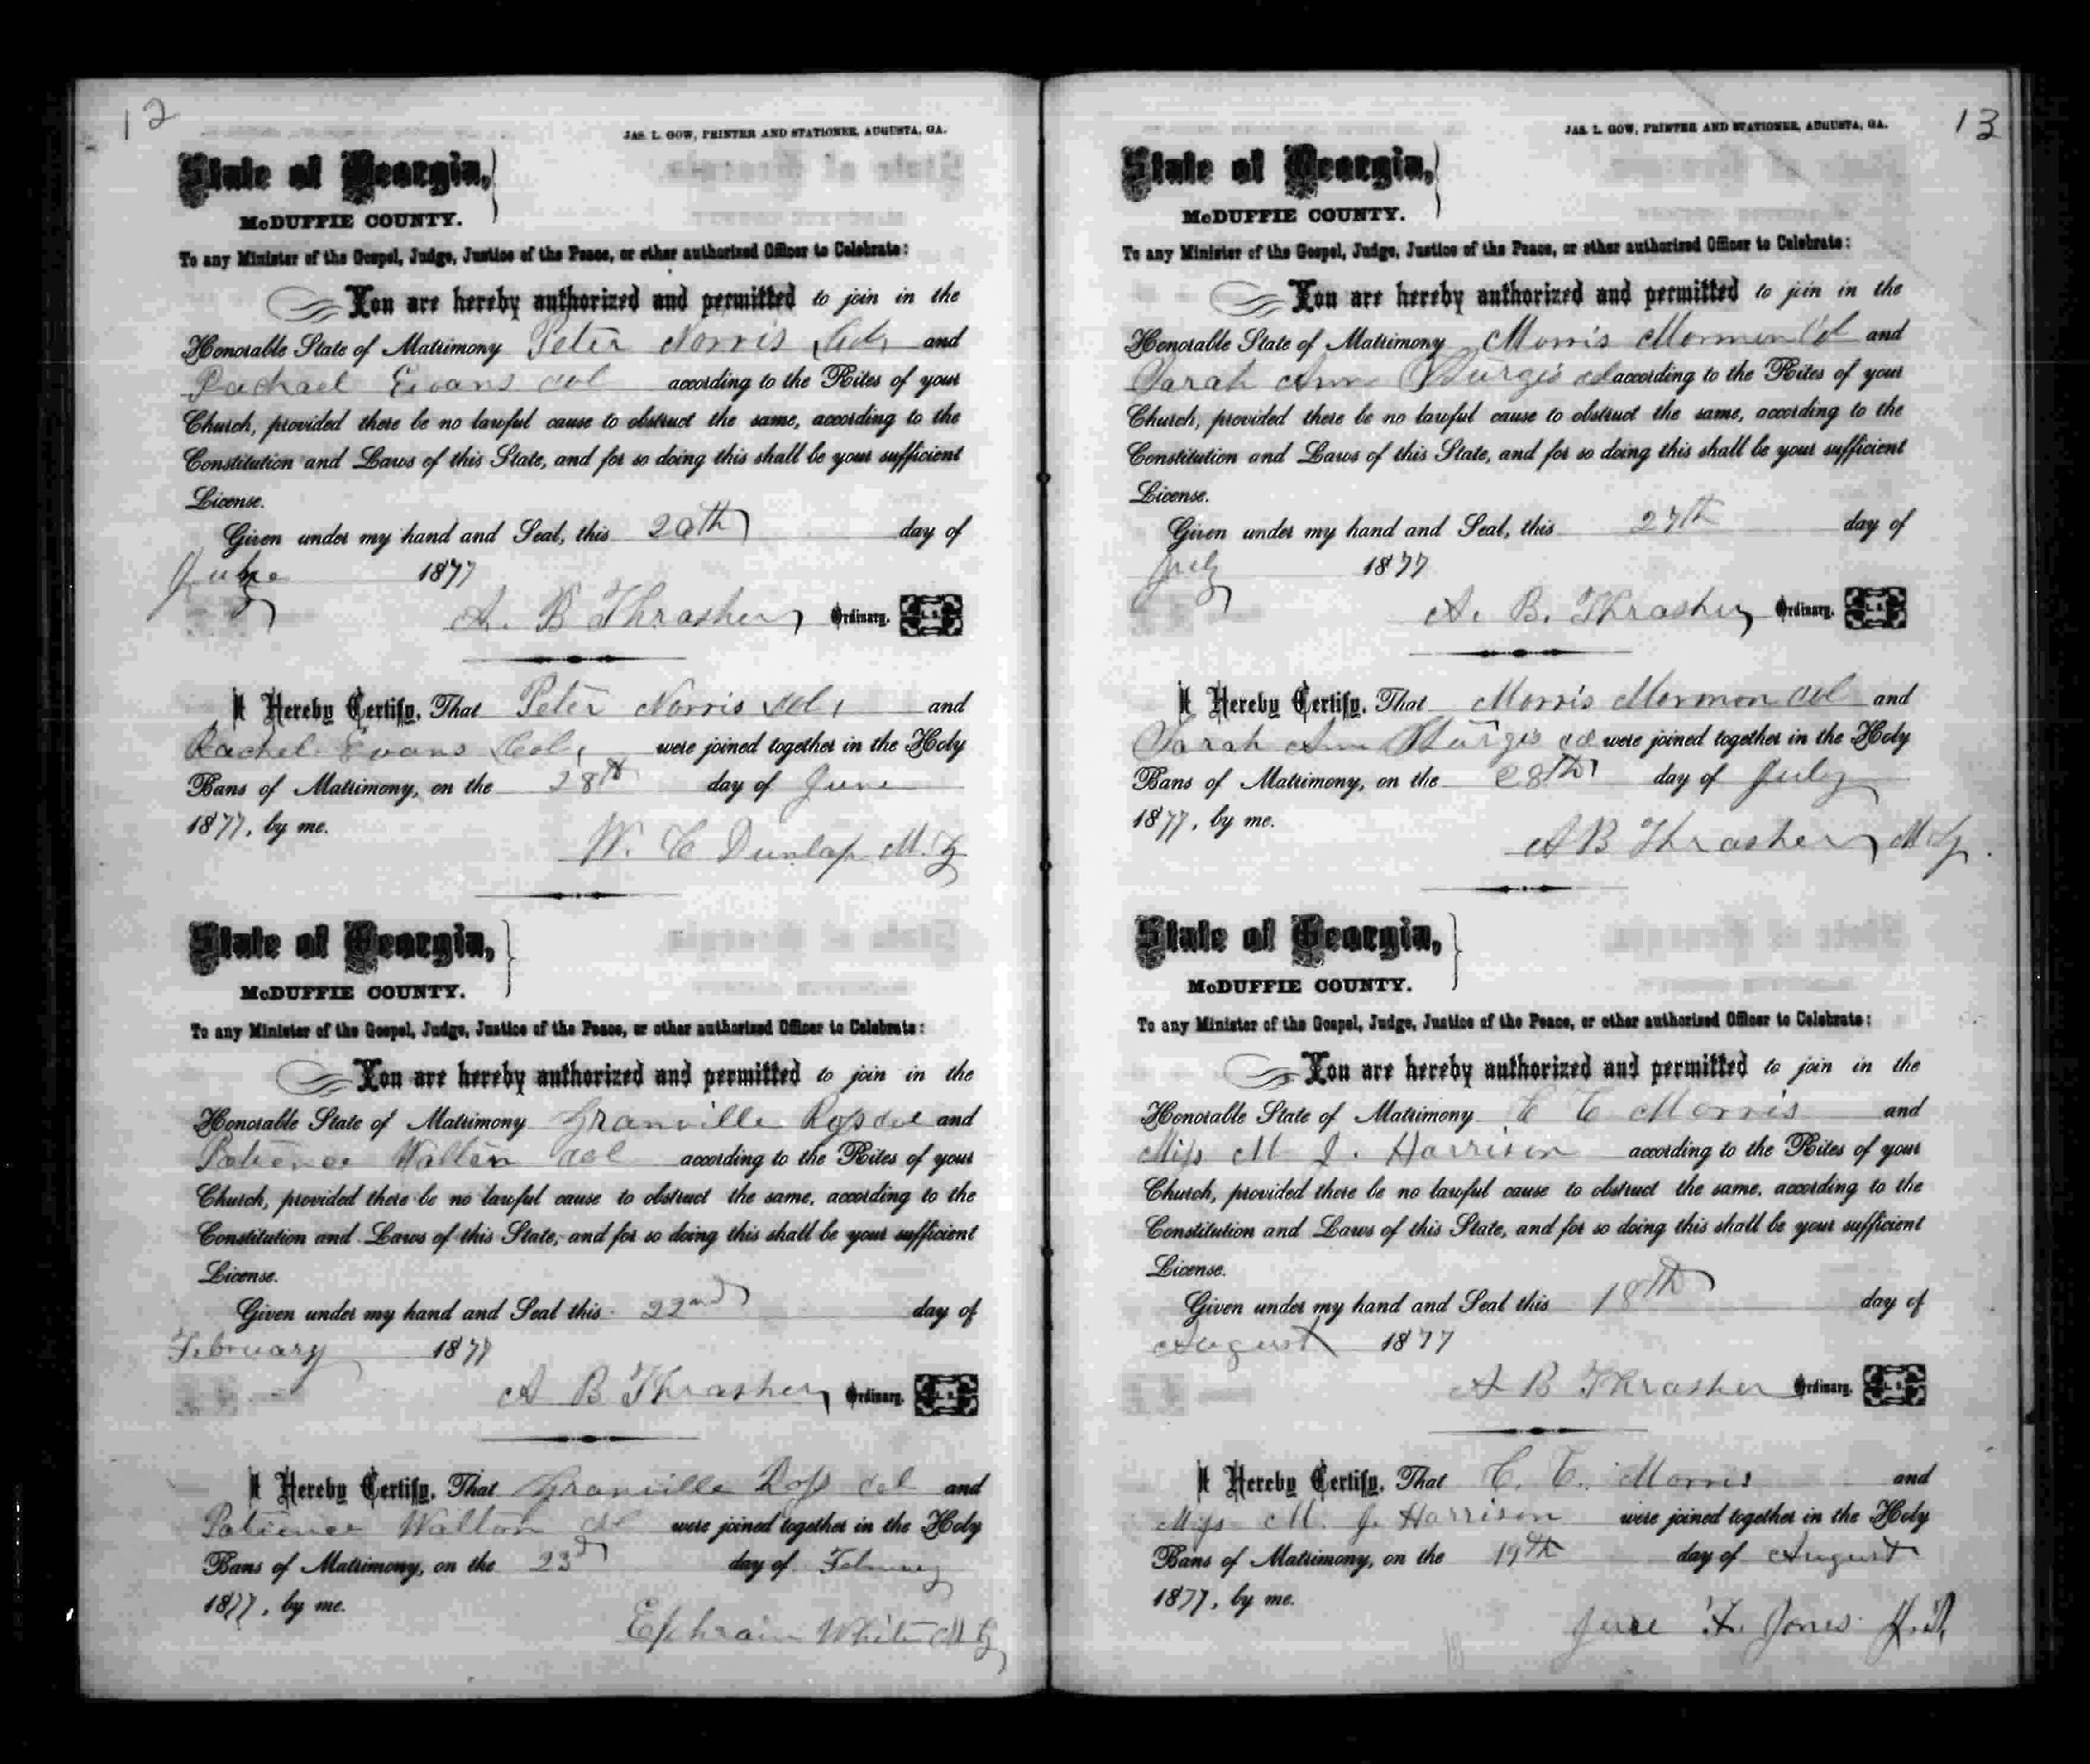 12
JAS. L. GOW, PRINTER AND STATIONER, AUGUSTA, GA.
State of Georgia,
McDUFFIE COUNTY.
To any Minister of the Gospel, Judge, Justice of the Peace, or other authorized Officer to Celebrate:
You are hereby authorized and permitted to join in the
Honorable State of Matrimony Peter Norris Col, and
Rachael Evans col according to the Rites of your
Church, provided there be no lawful cause to obstruct the same, according to the
Constitution and Laws of this State, and for so doing this shall be your sufficient
License.
Given under my hand and Seal, this day of
1877
A. B Thrasher Ordinary. L. S.
I Hereby Certify, That Peter Norris col, and
Rachel Evans Col, were joined together in the Holy
Bans of Matrimony, on the 28th day of June
1877, by me.
W. C Dunlap M. G
State of Georgia,
McDUFFIE COUNTY.
To any Minister of the Gospel, Judge, Justice of the Peace, or other authorized Officer to Celebrate:
You are hereby authorized and permitted to join in the
Honorable State of Matrimony Granville Ross col and
Patience Walton col according to the Rites of your
Church, provided there be no lawful cause to obstruct the same, according to the
Constitution and Laws of this State, and for so doing this shall be your sufficient
License.
Given under my hand and Seal this 22nd day of
February 1877
A B Thrasher Ordinary. L. S.
I Hereby Certify, That Granville Ross col and
Patience Walton col were joined together in the Holy
Bans of Matrimony, on the 23d day of February
1877, by me.
Ephraim White M G
13
JAS. L. GOW, PRINTER AND STATIONER, AUGUSTA, GA.
State of Georgia,
McDUFFIE COUNTY.
To any Minister of the Gospel, Judge, Justice of the Peace, or other authorized Officer to Celebrate:
You are hereby authorized and permitted to join in the
Honorable State of Matrimony Morris Mormon Col and
Sarah Ann Sturgis col according to the Rites of your
Church, provided there be no lawful cause to obstruct the same, according to the
Constitution and Laws of this State, and for so doing this shall be your sufficient
License.
Given under my hand and Seal, this 27th day of
July 1877
A. B. Thrasher Ordinary. L. S.
I Hereby Certify, That Morris Mormon col and
Sarah Ann Sturgis col were joined together in the Holy
Bans of Matrimony, on the 28th day of July
1877, by me.
A B Thrasher M G.
State of Georgia,
McDUFFIE COUNTY.
To any Minister of the Gospel, Judge, Justice of the Peace, or other authorized Officer to Celebrate:
You are hereby authorized and permitted to join in the
Honorable State of Matrimony C. C. Morris and
Miss M J. Harrison according to the Rites of your
Church, provided there be no lawful cause to obstruct the same, according to the
Constitution and Laws of this State, and for so doing this shall be your sufficient
License.
Given under my hand and Seal this 18th day of
August 1877
A B Thrasher Ordinary. L. S.
I Hereby Certify, That C. C. Morris and
Miss M. J. Harrison were joined together in the Holy
Bans of Matrimony, on the 19th day of August
1877, by me.
Jones